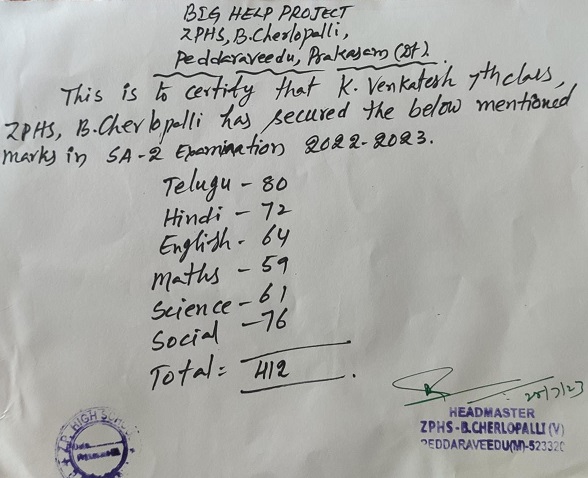 BIG HELP PROJECT
ZPHS, B.Cherlopalli,
Peddaraveedu, Prakasam (Dt).
This is to certify that K. Venkatesh 7th class,
ZPHS, B.Cherlopalli has secured the below mentioned
marks in SA-2 Examination 2022-2023.
Telugu - 80
Hindi - 72
English - 64
Maths - 59
Science - 61
Social - 76
Total = 412.
HEADMASTER
ZPHS-B.CHERLOPALLI (V)
PEDDARAVEEDU(M)-523320
Z.P. HIGH